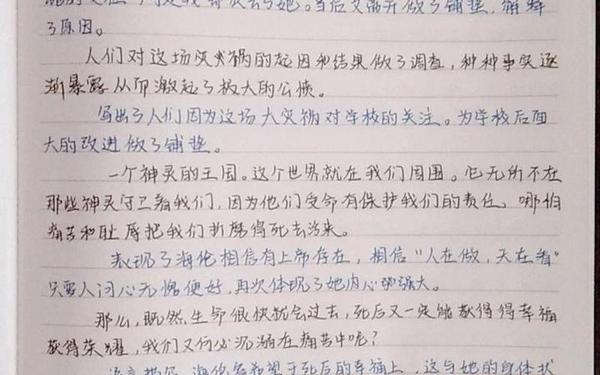 她。当后文离开做了铺垫,解释
了原因。
人们对这场灾祸的起因和结果做了调查,种种事实逐
渐暴露从而激起了极大的公愤。
写出了人们因为这场大灾祸对学校的关注。为学校后面
大的改进做了铺垫。
一个神灵的王国。这个世界就在我们周围。它无所不在
那些神灵守卫着我们,因为他们受命有保护我们的责任。哪怕
痛苦和耻辱把我们折磨得死去活来。
表现了海伦相信有上帝存在,相信“人在做,天在看”
只要人问心无愧便好,再次体现了她内心的强大。
那么,既然生命很快就会过去,死后又一定能获得得幸福
获得荣耀,我们又何必沉溺在痛苦中呢?
海伦 希望于死后的幸福上,这与她的身体状